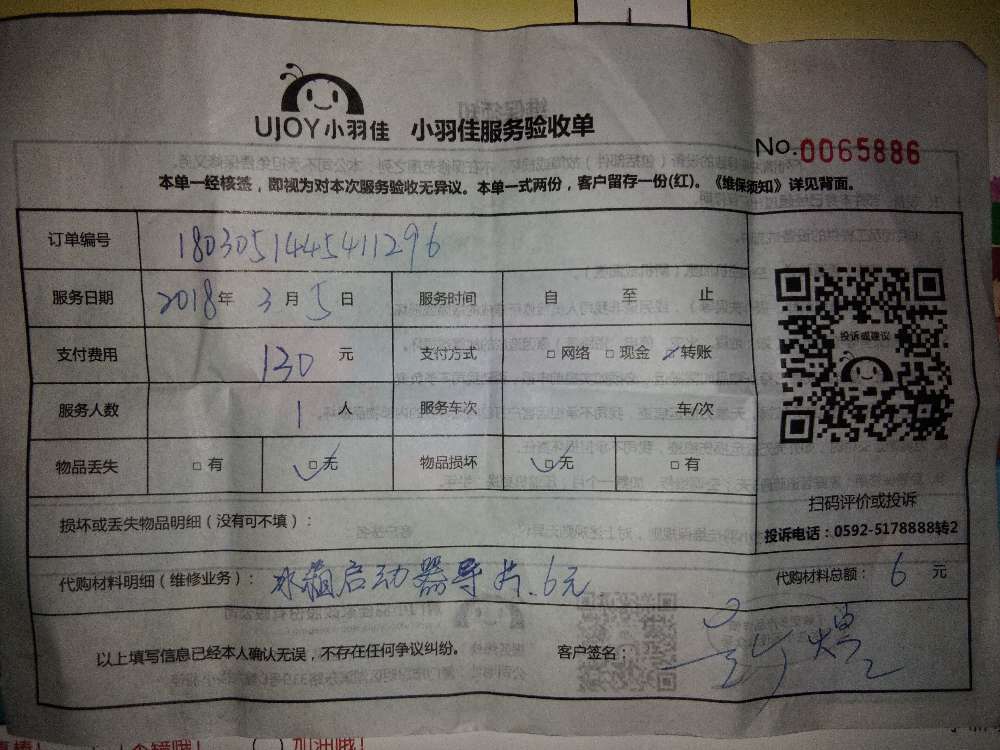 UJOY小羽佳 小羽佳服务验收单
No.0065886
本单一经核签，即视为对本次服务验收无异议。本单一式两份，客户留存一份(红)。《维保须知》详见背面。
订单编号 1803051445411296
服务日期 2018年3月5日 服务时间 自 至 止
投诉或建议
支付费用 130元 支付方式 □网络 □现金 ☑转账
服务人数 1人 服务车次 车/次
物品丢失 □有 ☑无 物品损坏 ☑无 □有
扫码评价或投诉
损坏或丢失物品明细（没有可不填）：
投诉电话：0592-5178888转2
代购材料明细（维修业务）：冰箱启动器导片.6元 代购材料总额：6元
以上填写信息已经本人确认无误，不存在任何争议纠纷。 客户签名：
加油哦！